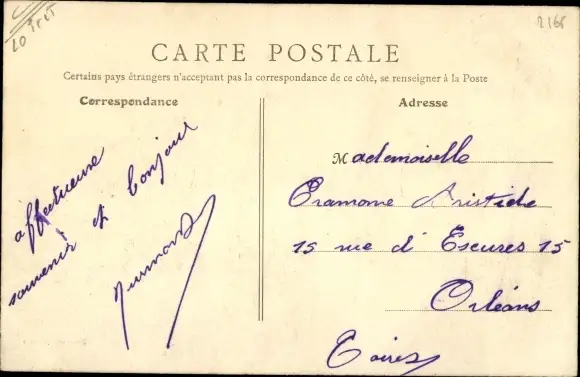 LOIRET
2166
CARTE POSTALE
Certains pays étrangers n'acceptent pas la correspondance de ce côté, se renseigner à la Poste
Correspondance
Adresse
affectueuse
souvenir et bonjour
Mademoiselle
Aristide
15 rue d'Escures 15
Orléans